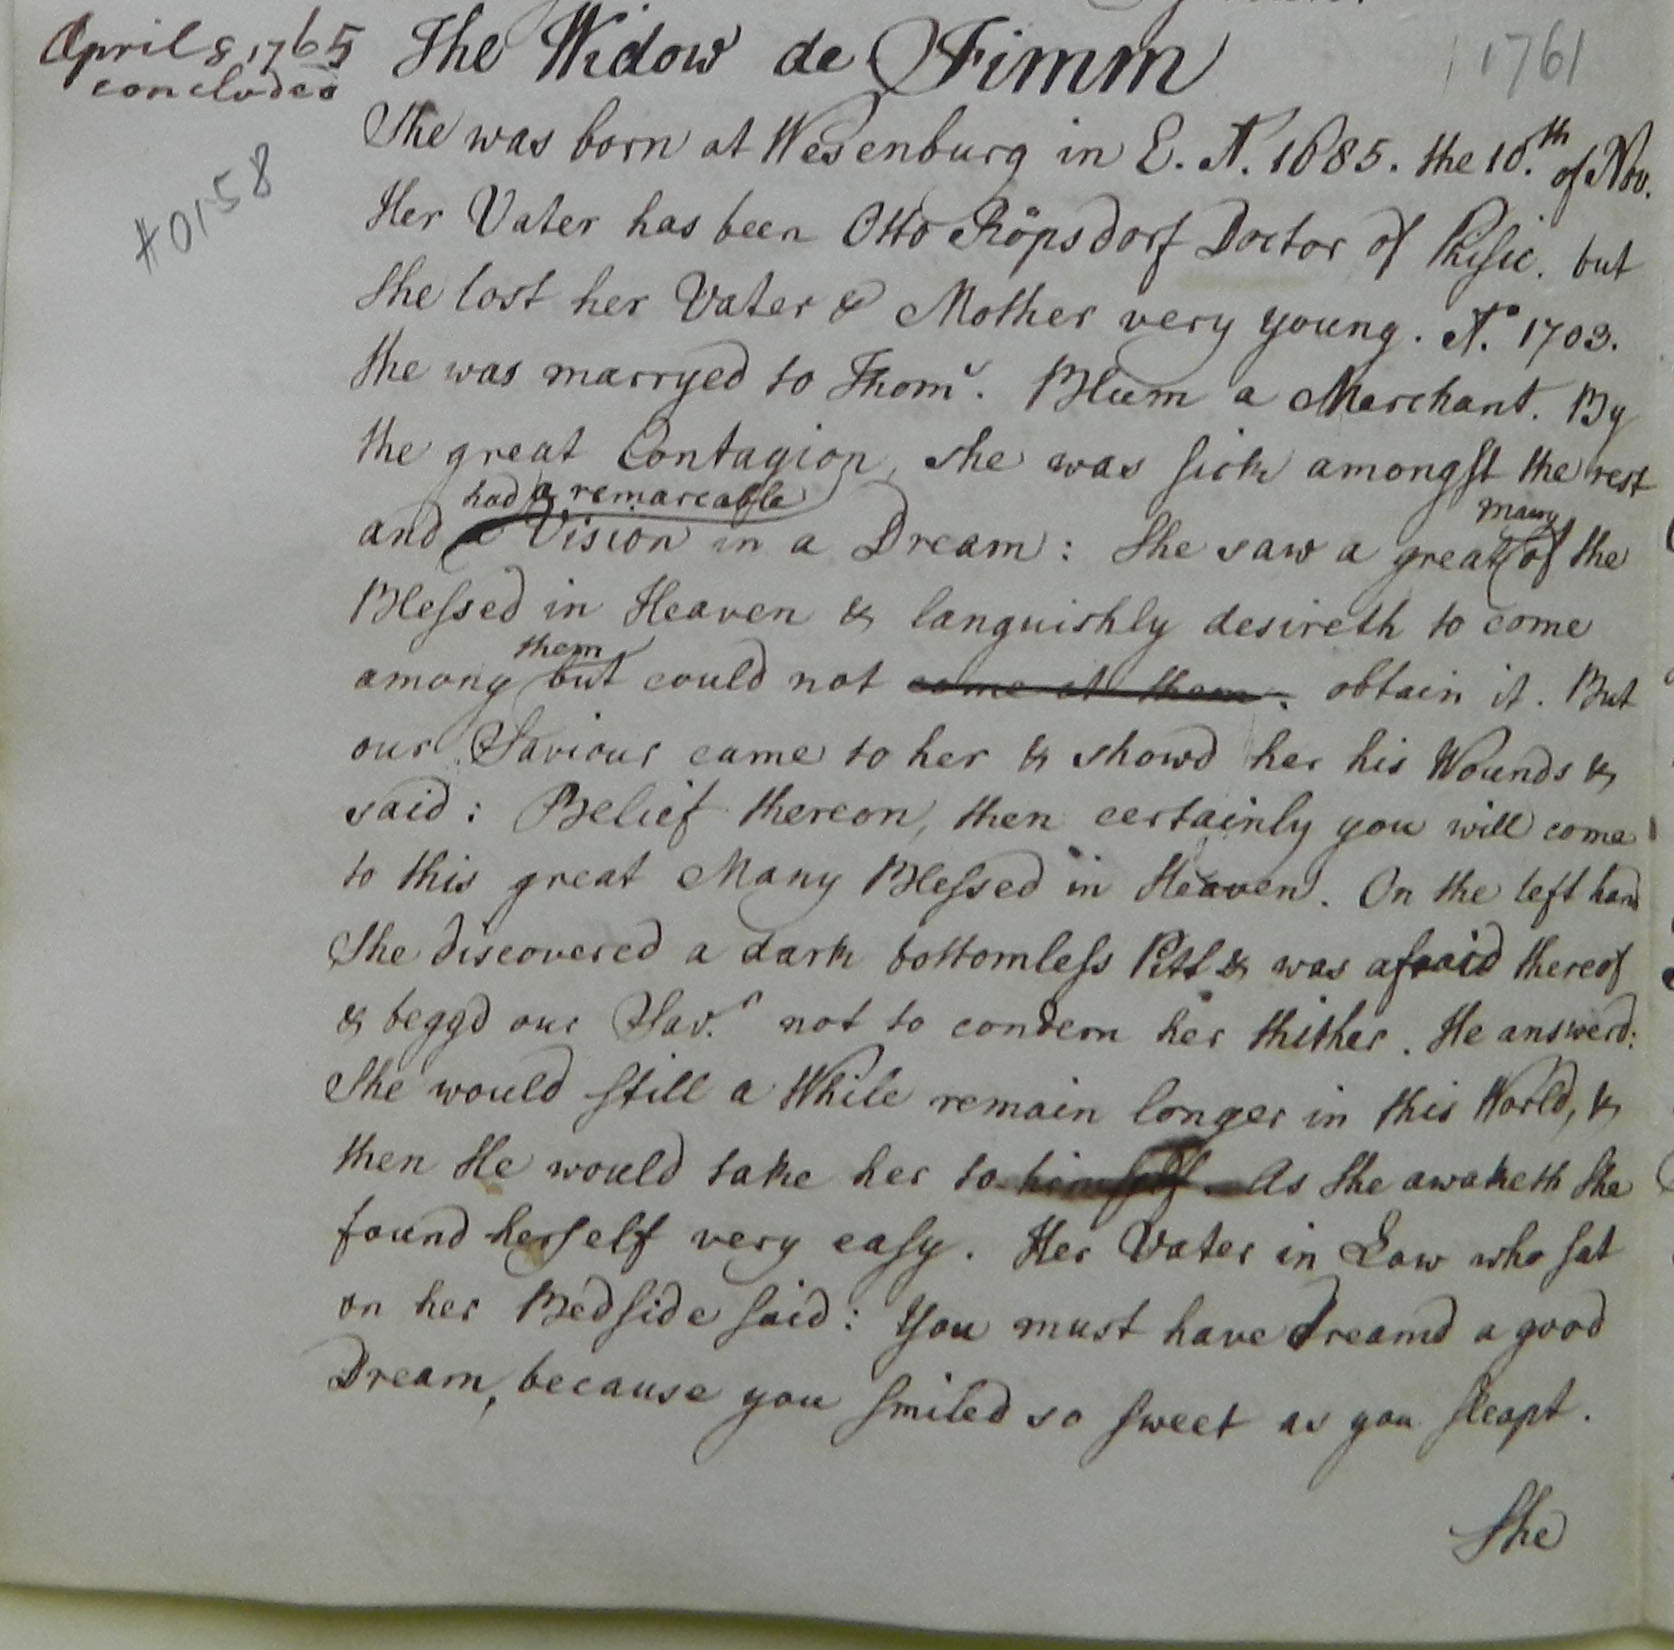 April 8 1765
concluded
The Widow de Fimm
1761
#0158
She was born at Wesenburg in E. A. 1685. the 10.th of Nov.
Her Vater has been Otto Röpsdorf Doctor of Phisic. but
she lost her Vater & Mother very young. Ao. 1703.
she was marryed to Thoms. Blum a Merchant. By
the great Contagion, she was sick amongst the rest
had a remarcable
and a Vision in a Dream: She saw a great many of the
Blessed in Heaven & languishly desireth to come
among them but could not come at them. obtain it. But
our Saviour came to her & showd her his Wounds &
said: Belief thereon, then certainly you will come
to this great Many Blessed in Heaven. On the left hand
She discovered a dark bottomless Pitt & was afraid thereof
& beggd our Savr. not to condem her thither. He answerd:
She would still a While remain longer in this World, &
then He would take her to himself. As she awaketh she
found herself very easy. Her Vater in Law who sat
on her Bedside said: You must have dreamd a good
Dream, because you smiled so sweet as you sleapt.
She